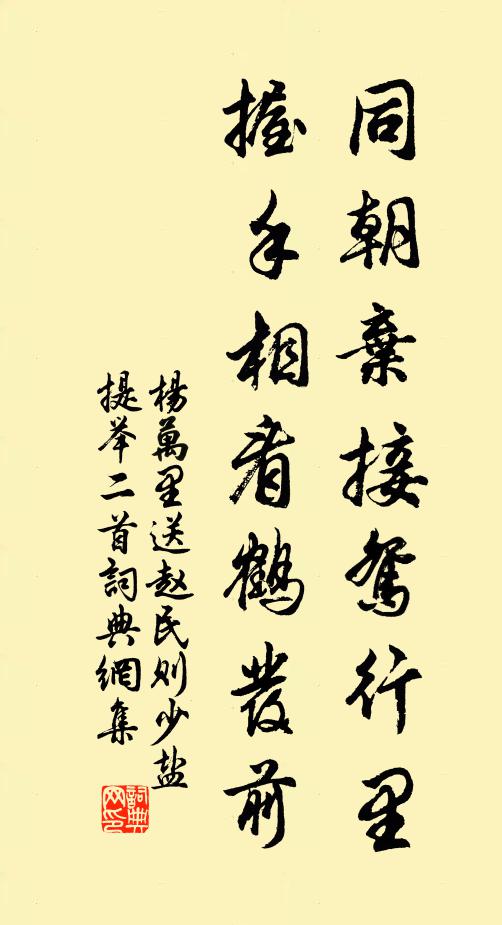 同朝棄接鴛行里
握手相看鶴發前
楊萬里送赵民则少盐
提举二首詞典網集
詞典
网印